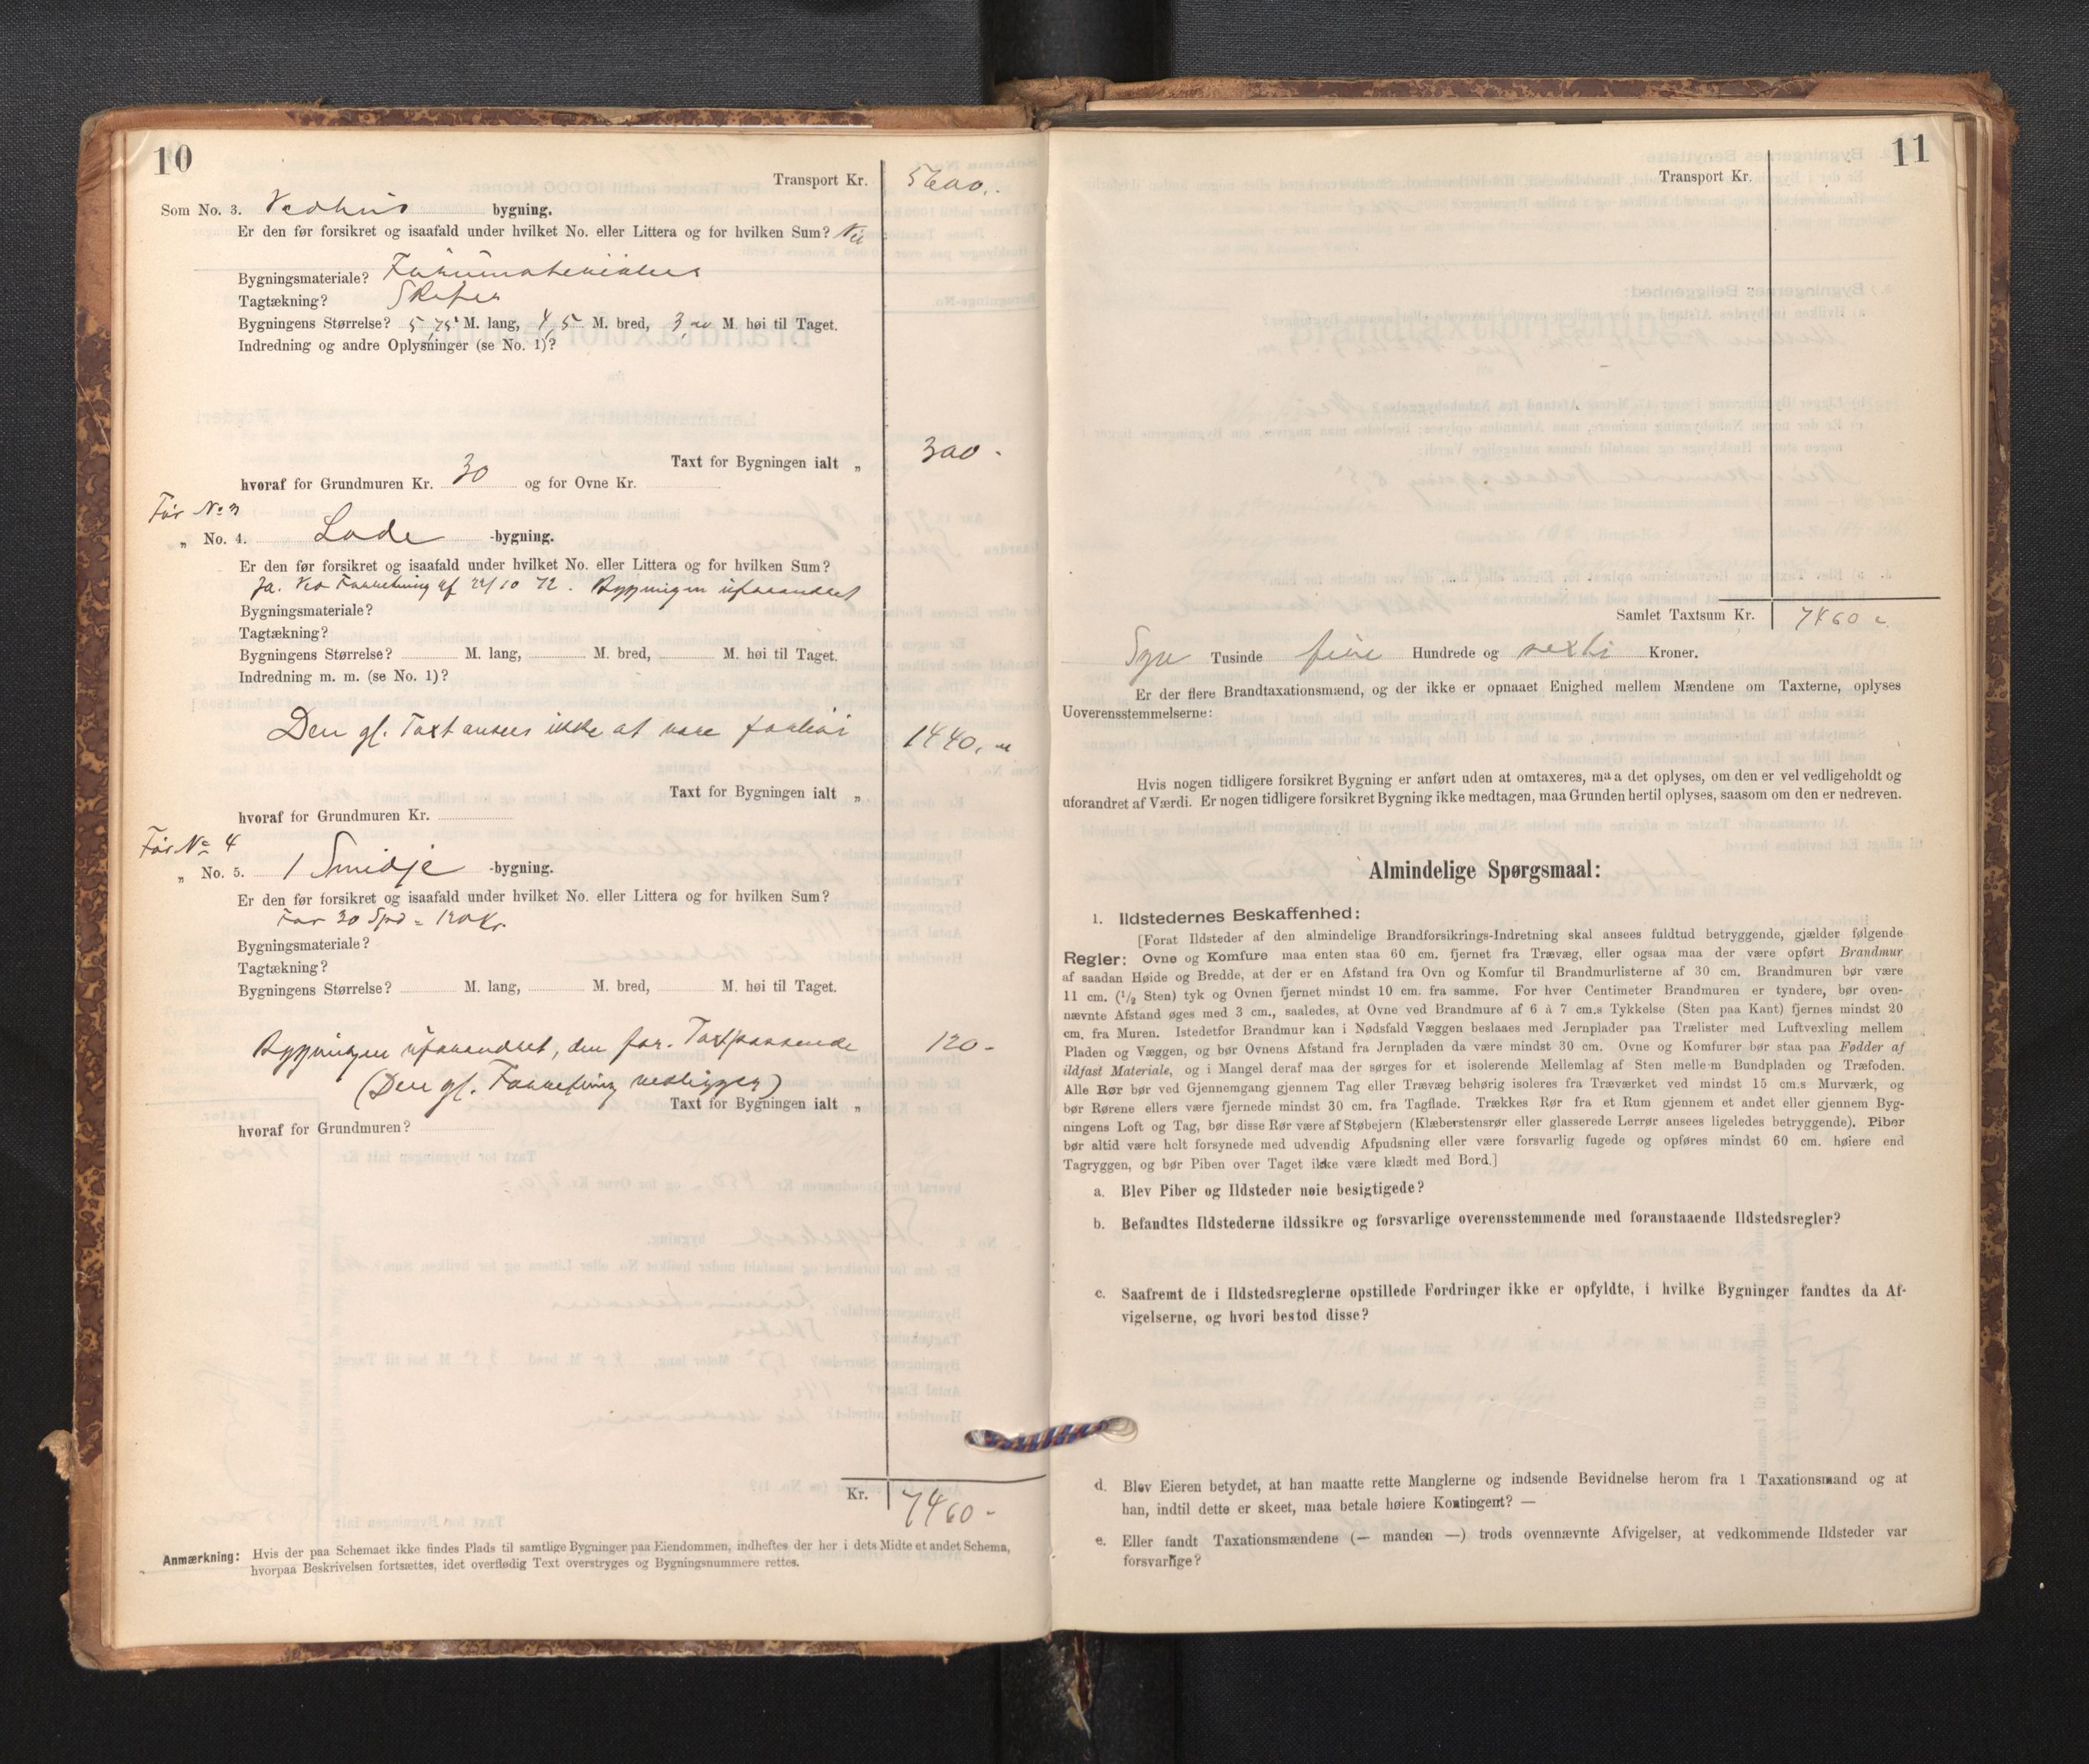 10
Transport Kr. 5600,.
Som No. 3. Vedhus bygning.
Er den før forsikret og isaafald under hvilket No. eller Littera og for hvilken Sum? Nei
Bygningsmateriale? Furumaterialer
Tagtækning? Skifer
Bygningens Størrelse? 5,75 M. lang, 4,5 M. bred, 3,00 M. høi til Taget.
Indredning og andre Oplysninger (se No. 1)?
Taxt for Bygningen ialt „ 300 -
hvoraf for Grundmuren Kr. 30 og for Ovne Kr.
Før No 3
„ No. 4. Lade -bygning.
Er den før forsikret og isaafald under hvilket No. eller Littera og for hvilken Sum?
Ja. Ved Forretning af 22/10 72. Bygningen uforandret
Bygningsmateriale?
Tagtækning?
Bygningens Størrelse? M. lang, M. bred, M. høi til Taget.
Indredning m. m. (se No. 1)?
Den gl. Taxt ansees ikke at være for høi 1440,00
Taxt for Bygningen ialt „
hvoraf for Grundmuren Kr.
Før No 4
„ No. 5. 1 Smidje -bygning.
Er den før forsikret og isaafald under hvilket No. eller Littera og for hvilken Sum?
For 30 Spd = 120 Kr.
Bygningsmateriale?
Tagtækning?
Bygningens Størrelse? M. lang, M. bred, M. høi til Taget.
Bygningen uforandret, den for. Taxt passende 120 -
(Den gl. Forretning vedligger)
Taxt for Bygningen ialt „
hvoraf for Grundmuren?
Kr. 7460 -
Anmærkning: Hvis der paa Schemaet ikke findes Plads til samtlige Bygninger paa Eiendommen, indheftes der her i dets Midte et andet Schema,
hvorpaa Beskrivelsen fortsættes, idet overflødig Text overstryges og Bygningsnummere rettes.
11
Transport Kr.
Samlet Taxtsum Kr. 7460
Syv Tusinde fire Hundrede og sexti Kroner.
Er der flere Brandtaxationsmænd, og der ikke er opnaaet Enighed mellem Mændene om Taxterne, oplyses
Uoverensstemmelserne:
Hvis nogen tidligere forsikret Bygning er anført uden at omtaxeres, maa det oplyses, om den er vel vedligeholdt og
uforandret af Værdi. Er nogen tidligere forsikret Bygning ikke medtagen, maa Grunden hertil oplyses, saasom om den er nedreven.
Almindelige Spørgsmaal:
1. Ildstedernes Beskaffenhed:
[Forat Ildsteder af den almindelige Brandforsikrings-Indretning skal ansees fuldtud betryggende, gjælder følgende
Regler: Ovne og Komfure maa enten staa 60 cm. fjernet fra Trævæg, eller ogsaa maa der være opført Brandmur
af saadan Høide og Bredde, at der er en Afstand fra Ovn og Komfur til Brandmurlisterne af 30 cm. Brandmuren bør være
11 cm. (1/2 Sten) tyk og Ovnen fjernet mindst 10 cm. fra samme. For hver Centimeter Brandmuren er tyndere, bør oven-
nævnte Afstand øges med 3 cm., saaledes, at Ovne ved Brandmure af 6 à 7 cm.s Tykkelse (Sten paa Kant) fjernes mindst 20
cm. fra Muren. Istedetfor Brandmur kan i Nødsfald Væggen beslaaes med Jernplader paa Trælister med Luftvexling mellem
Pladen og Væggen, og bør Ovnens Afstand fra Jernpladen da være mindst 30 cm. Ovne og Komfurer bør staa paa Fødder af
ildfast Materiale, og i Mangel deraf maa der sørges for et isolerende Mellemlag af Sten mellem Bundpladen og Træfoden.
Alle Rør bør ved Gjennemgang gjennem Tag eller Trævæg behørig isoleres fra Træværket ved mindst 15 cm.s Murværk, og
bør Rørene ellers være fjernede mindst 30 cm. fra Tagflade. Trækkes Rør fra et Rum gjennem et andet eller gjennem Byg-
ningens Loft og Tag, bør disse Rør være af Støbejern (Klæberstensrør eller glasserede Lerrør ansees ligeledes betryggende). Piber
bør altid være helt forsynede med udvendig Afpudsning eller være forsvarlig fugede og opføres mindst 60 cm. høiere end
Tagryggen, og bør Piben over Taget ikke være klædt med Bord.]
a. Blev Piber og Ildsteder nøie besigtigede?
b. Befandtes Ildstederne ildssikre og forsvarlige overensstemmende med foranstaaende Ildstedsregler?
c. Saafremt de i Ildstedsreglerne opstillede Fordringer ikke er opfyldte, i hvilke Bygninger fandtes da Af-
vigelserne, og hvori bestod disse?
d. Blev Eieren betydet, at han maatte rette Manglerne og indsende Bevidnelse herom fra 1 Taxationsmand og at
han, indtil dette er skeet, maa betale høiere Kontingent? —
e. Eller fandt Taxationsmændene (— manden —) trods ovennævnte Afvigelser, at vedkommende Ildsteder var
forsvarlige?